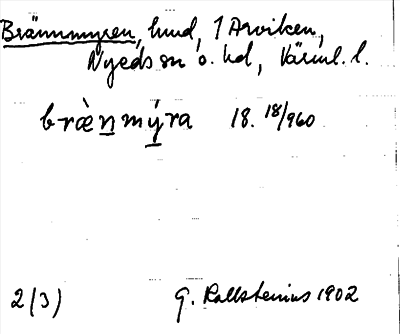 Brännmyren, hmd, 1 Arviken,
Nyeds sn o. hd, Värml. l.
bræ̀nmýra 18. 18/960
2(3) G. Kallstenius 1902